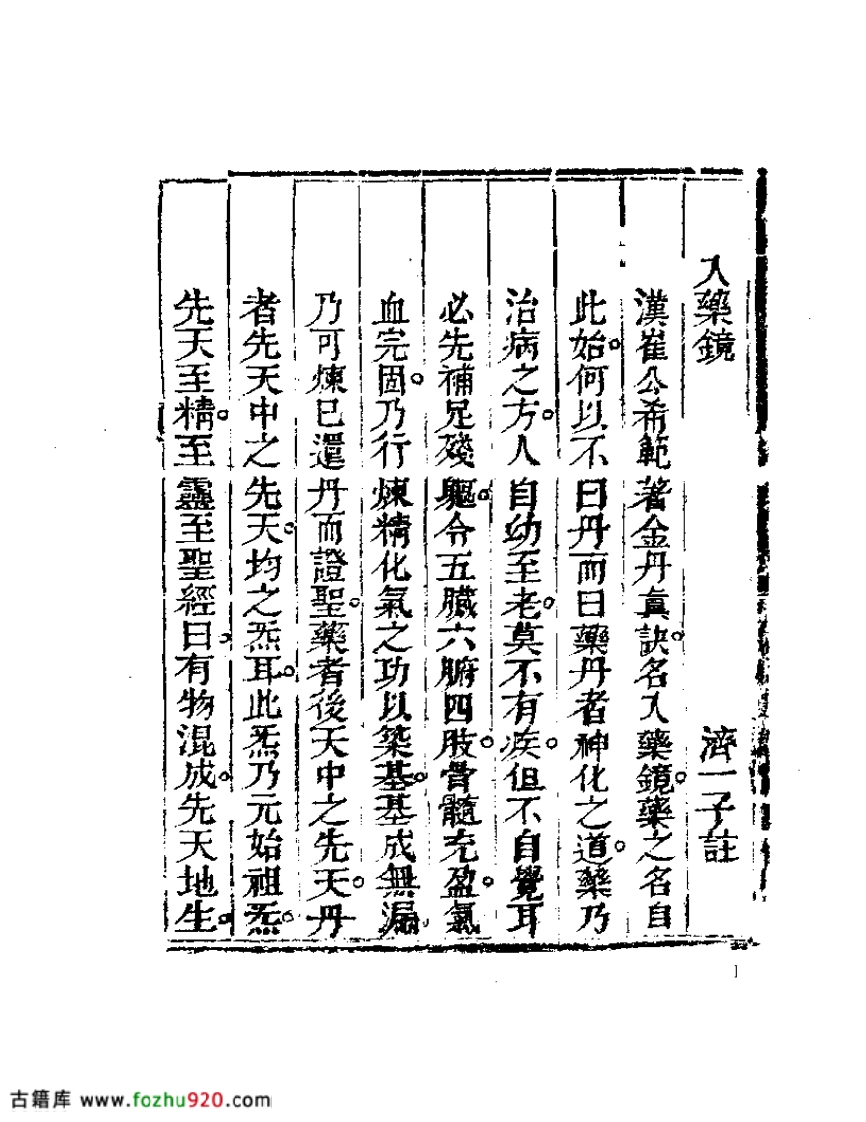 入藥鏡
濟一子註
漢崔公希範著金丹眞訣。名入藥鏡。藥之名自
此始。何以不曰丹而曰藥丹者神化之道。藥乃
治病之方。人自幼至老。莫不有疾。但不自覺耳
必先補足殘軀。令五臟六腑四肢。骨髓充盈。氣
血完固。乃行煉精化氣之功以築基。基成無漏。
乃可煉已還丹而證聖。藥者後天中之先天。丹
者先天中之先天。均之炁耳。此炁乃元始祖炁。
先天至精。至靈至聖經曰。有物混成。先天地生。
1
古籍库 www.fozhu920.com